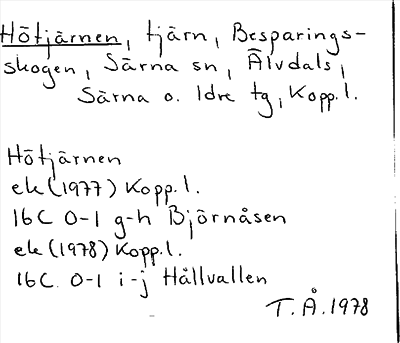 Hötjärnen, tjärn, Besparings-
skogen, Särna sn, Älvdals,
Särna o. Idre tg, Kopp.l.
Hötjärnen
ek (1977) Kopp.l.
16C 0-1 g-h Björnåsen
ek (1978) Kopp.l.
16C 0-1 i-j Hållvallen
T.Å. 1978